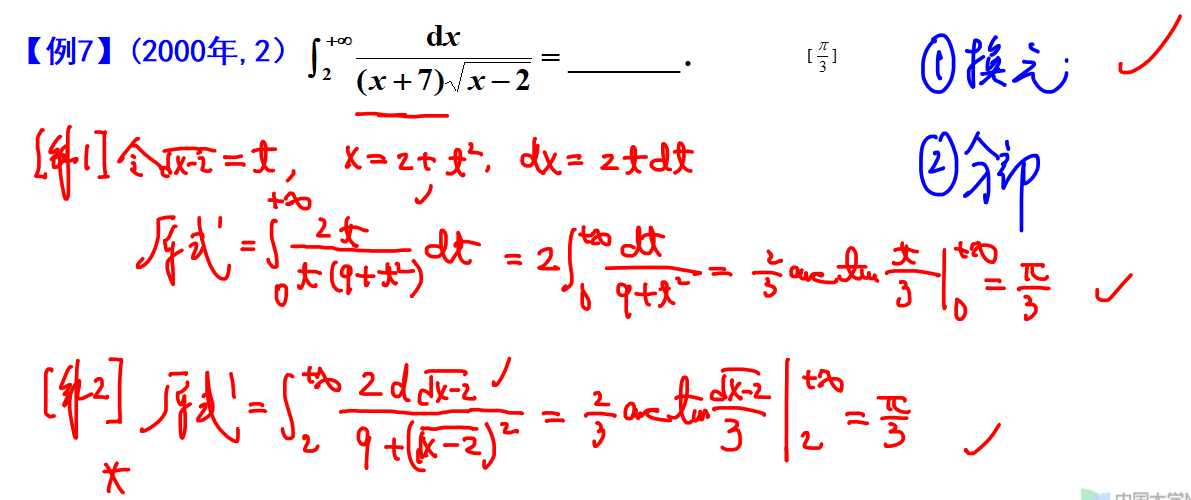 【例7】(2000年,2) ∫₂^{+∞} dx / ((x+7)√(x−2)) = ______ . [π/3]
① 换元
② 分部
[解1] 令 √(x-2) = t, x = 2 + t², dx = 2t dt
原式 = ∫₀^{+∞} 2t / (t(9+t²)) dt = 2∫₀^{+∞} dt / (9+t²) = 2/3 arctan t/3 |₀^{+∞} = π/3
[解2] 原式 = ∫₂^{+∞} 2d√(x-2) / (9+(√(x-2))²) = 2/3 arctan √(x-2)/3 |₂^{+∞} = π/3